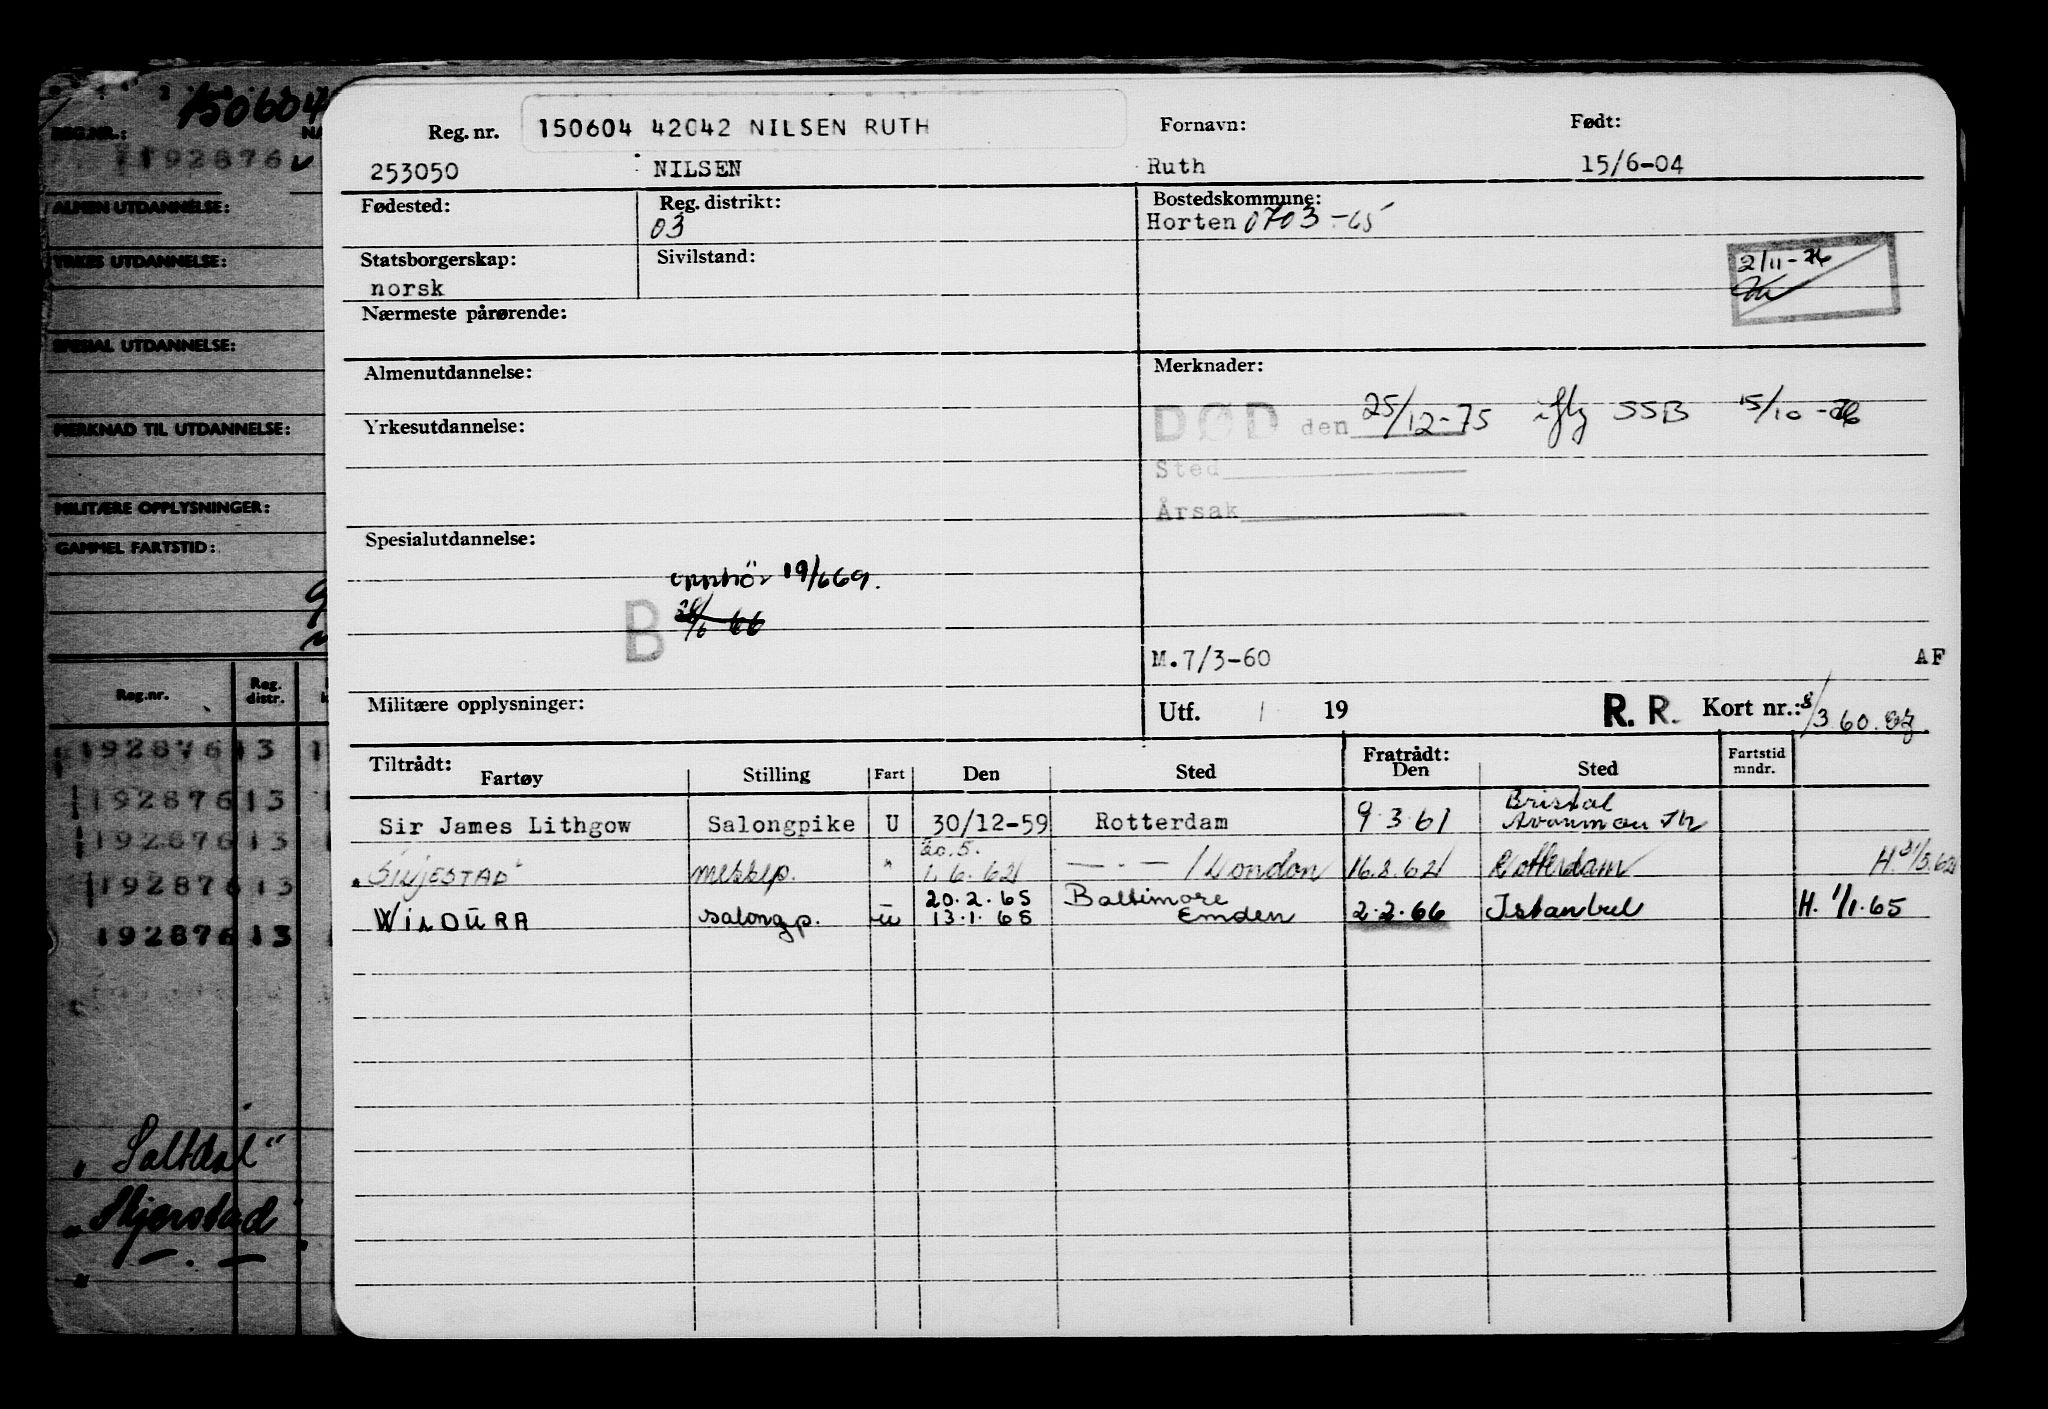 150604
REG.NR.:
192876
ALMEN UTDANNELSE:
YRKES UTDANNELSE:
SPESIAL UTDANNELSE:
MERKNAD TIL UTDANNELSE:
MILITÆRE OPPLYSNINGER:
GAMMEL FARTSTID:
Reg.nr. Reg. distr.
192876 13
192876 13
192876 13
192876 13
192876 13
"Saltdal"
Reg. nr. 150604 42042 NILSEN RUTH Fornavn: Født:
253050 NILSEN Ruth 15/6-04
Fødested: Reg. distrikt: Bostedskommune:
03 Horten 0703-65
Statsborgerskap: Sivilstand: 2/11-76
norsk
Nærmeste pårørende:
Almenutdannelse: Merknader:
DØD den 25/12-75 SSB 15/10-76
Yrkesutdannelse:
Sted
Årsak
Spesialutdannelse:
opphör 19/6 69.
B
M.7/3-60 AF
Militære opplysninger: Utf. / 19 R. R. Kort nr.: 8/3 60.
Tiltrådt: Fratrådt:
Fartøy Stilling Fart Den Sted Den Sted Fartstid mndr.
Sir James Lithgow Salongpike U 30/12-59 Rotterdam 9.3.61 Bristol
20.5.
"SILJESTAD" messep. " 1.6.62 — " — / London 16.8.62 Rotterdam H. 21/5.62
20.2.65 Baltimore
WILDURA salongp. U 13.1.65 Emden 2.2.66 Istanbul H. 1/1.65